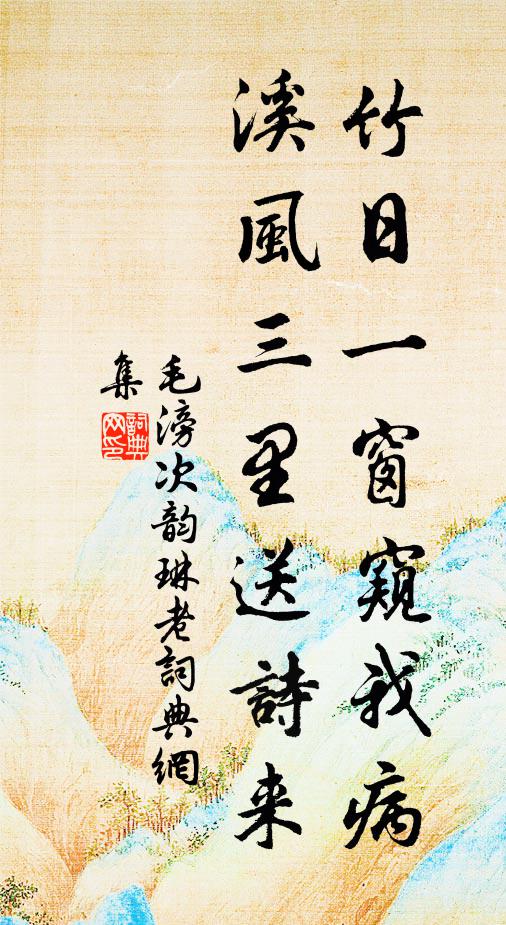 竹日一窗窺我病
溪風三里送詩来
毛滂次韵琳老詞典網
集
詞典网印